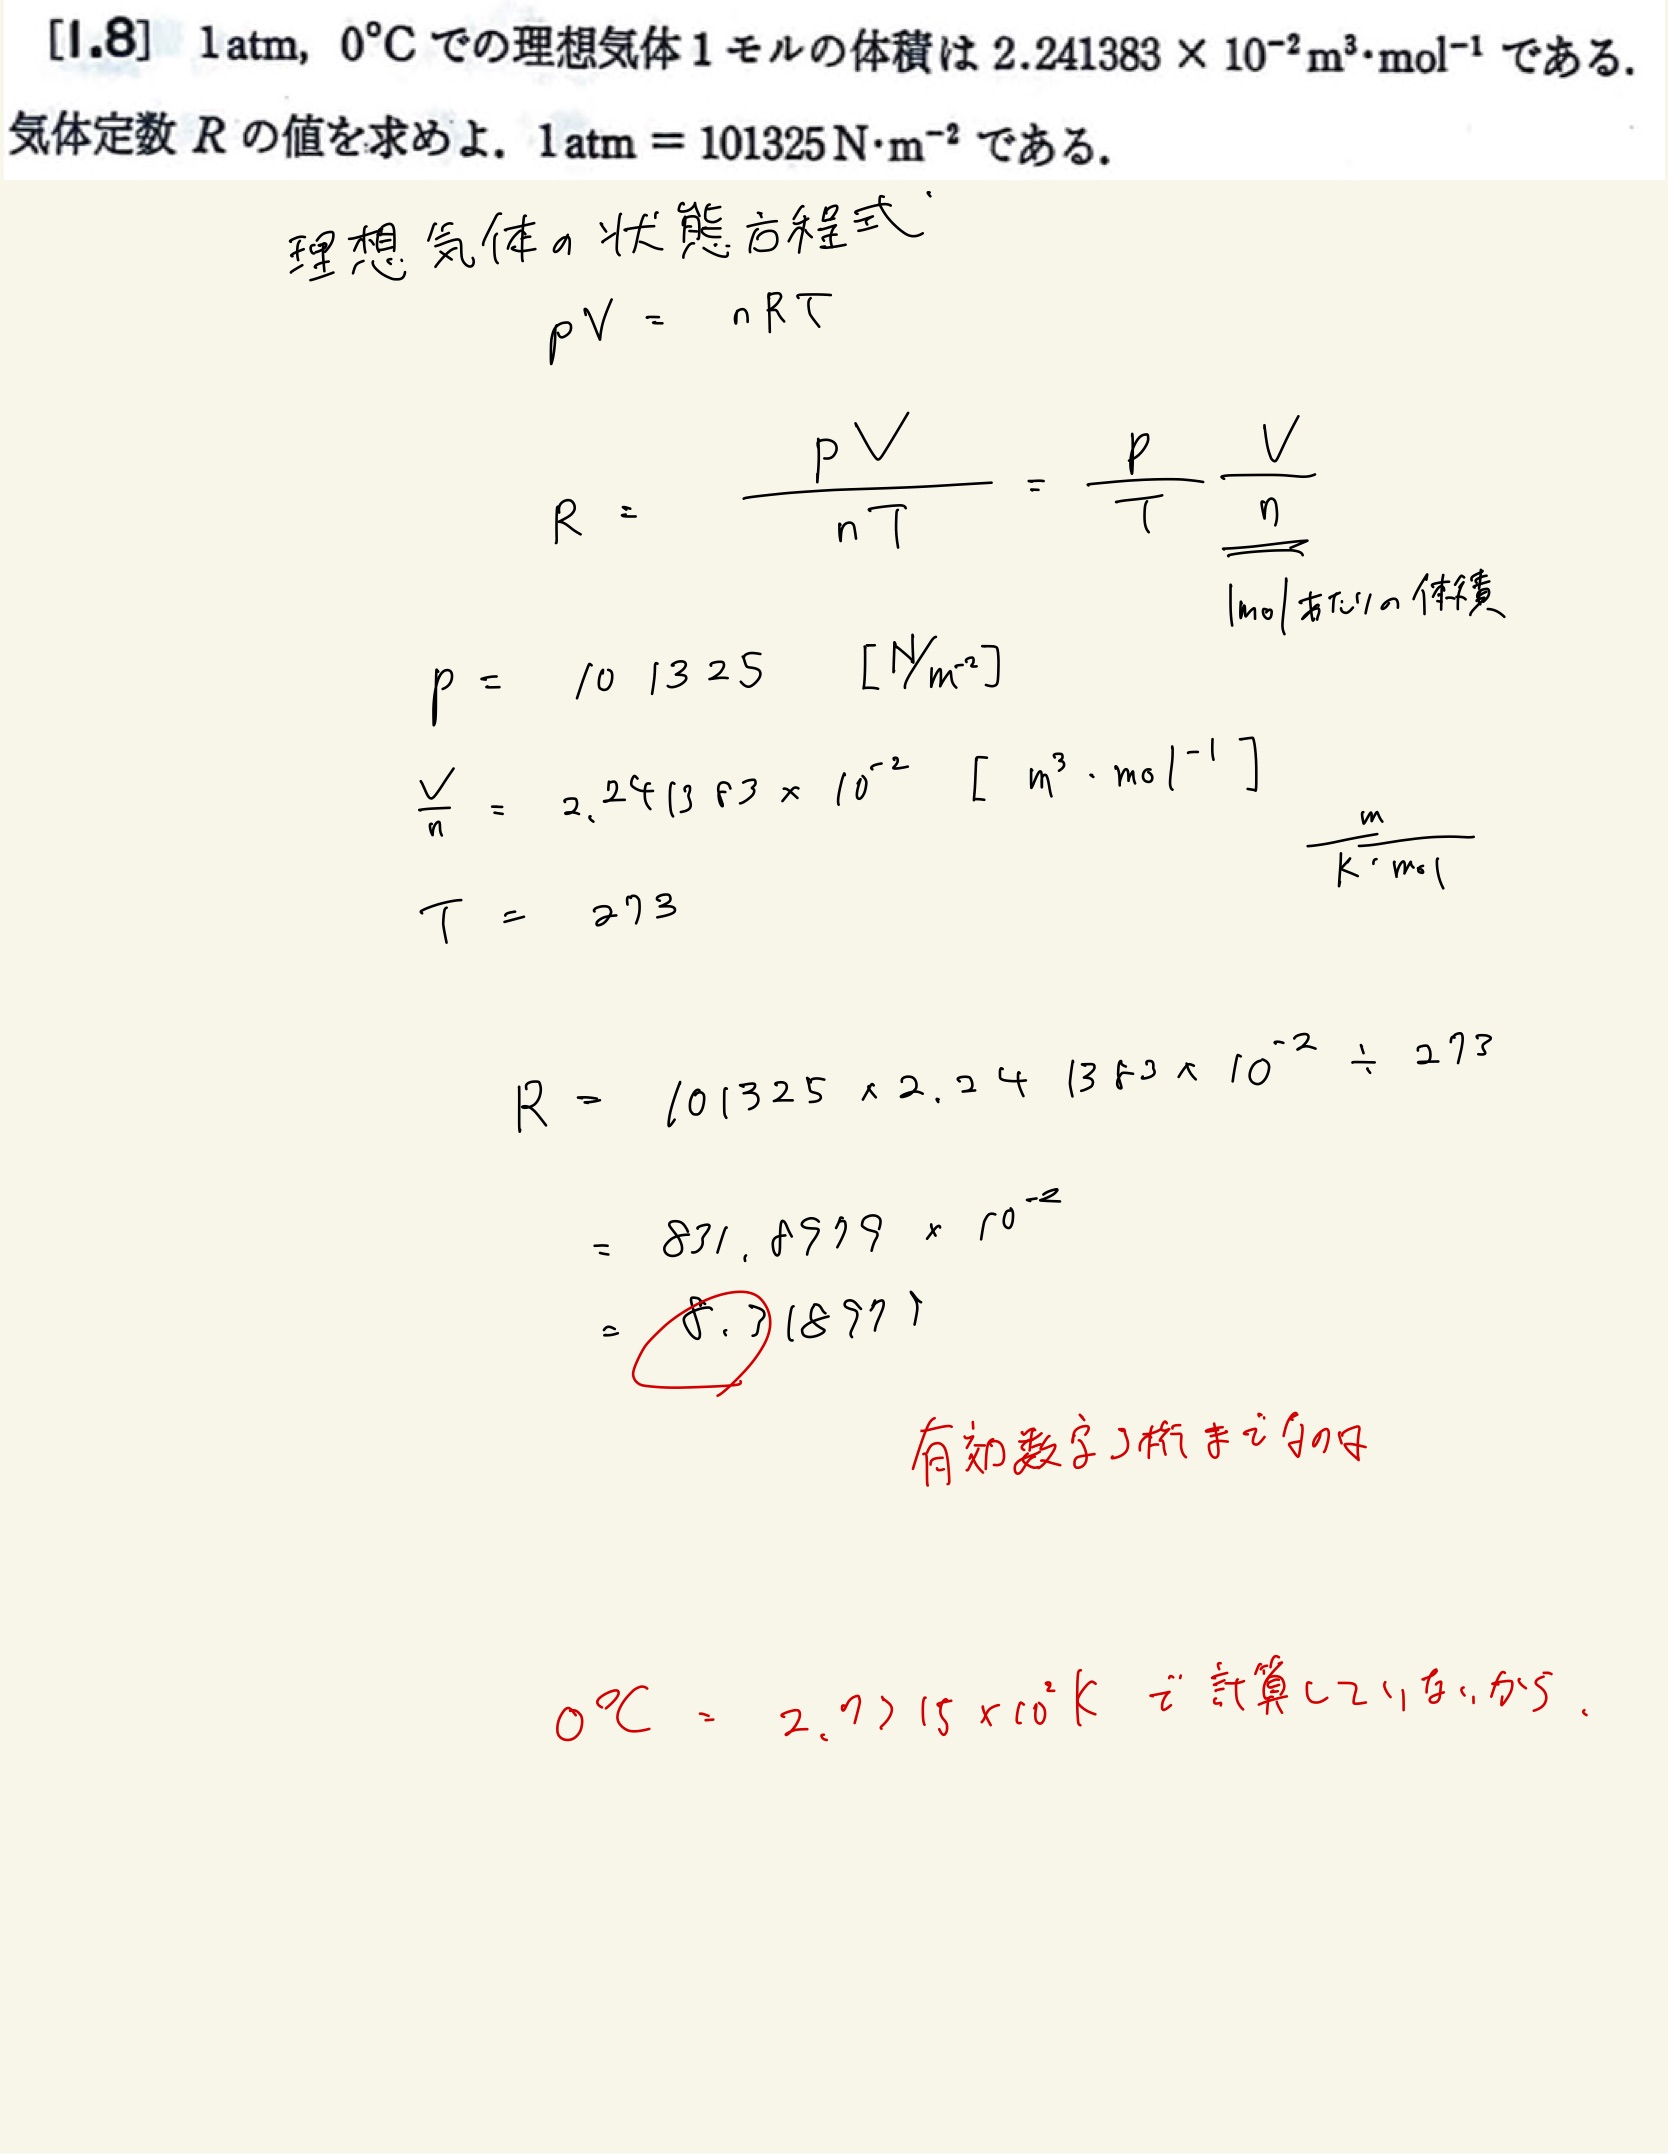 [1.8] 1 atm, 0°C での理想気体 1 モルの体積は 2.241383 × 10⁻² m³·mol⁻¹ である.
気体定数 R の値を求めよ. 1 atm = 101325 N·m⁻² である.
理想気体の状態方程式
pV = nRT
R = pV/nT = p/T V/n
1molあたりの体積
p = 101325 [N/m⁻²]
V/n = 2.241383 × 10⁻² [m³·mol⁻¹]
m/K·mol
T = 273
R = 101325 × 2.241383 × 10⁻² ÷ 273
= 831.8979 × 10⁻²
= 8.318979
有効数字3桁までなのは
0℃ = 2.7315 × 10² K で計算していないから.